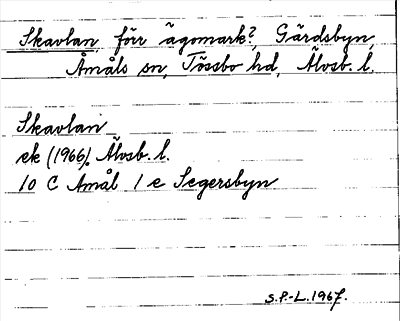 Skavlan, förr ägomark?, Gärdsbyn,
Åmåls sn, Tössbo hd, Älvsb. l.
Skavlan
ek (1966). Älvsb. l.
10 C Åmål 1 e Segersbyn
S.P.-L. 1967.